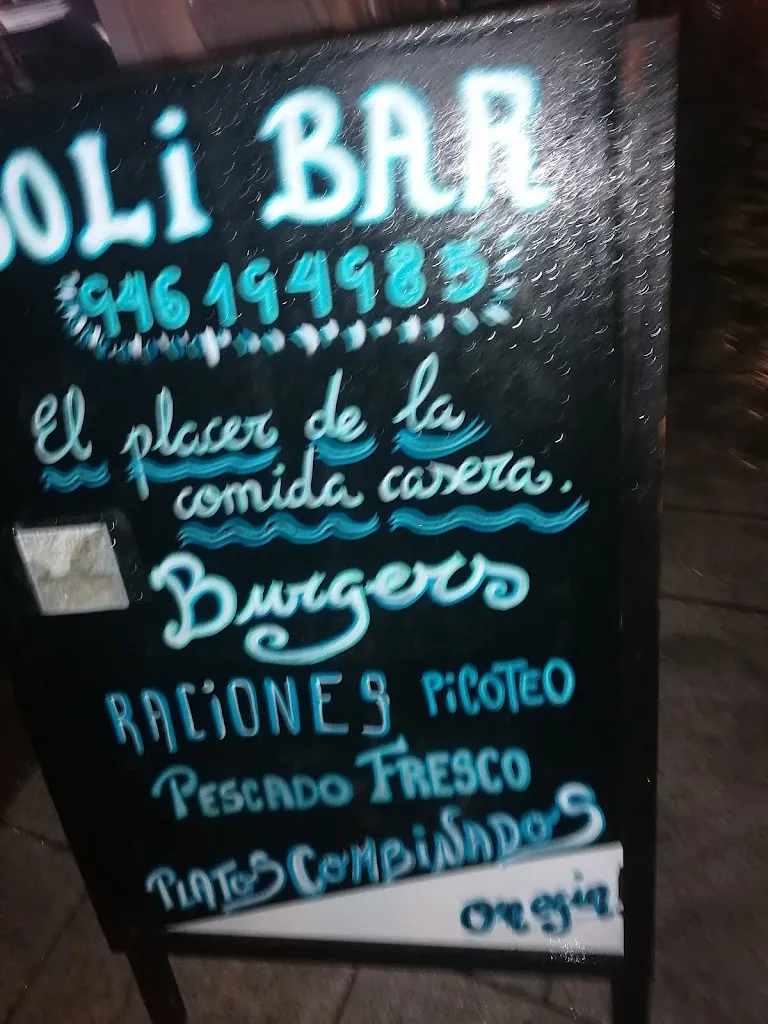 OLi BAR
946194985
El placer de la
comida casera.
Burgers
RACiONES PiCOTEO
PESCADO FRESCO
PLATOS COMBiNADOS
on egin!